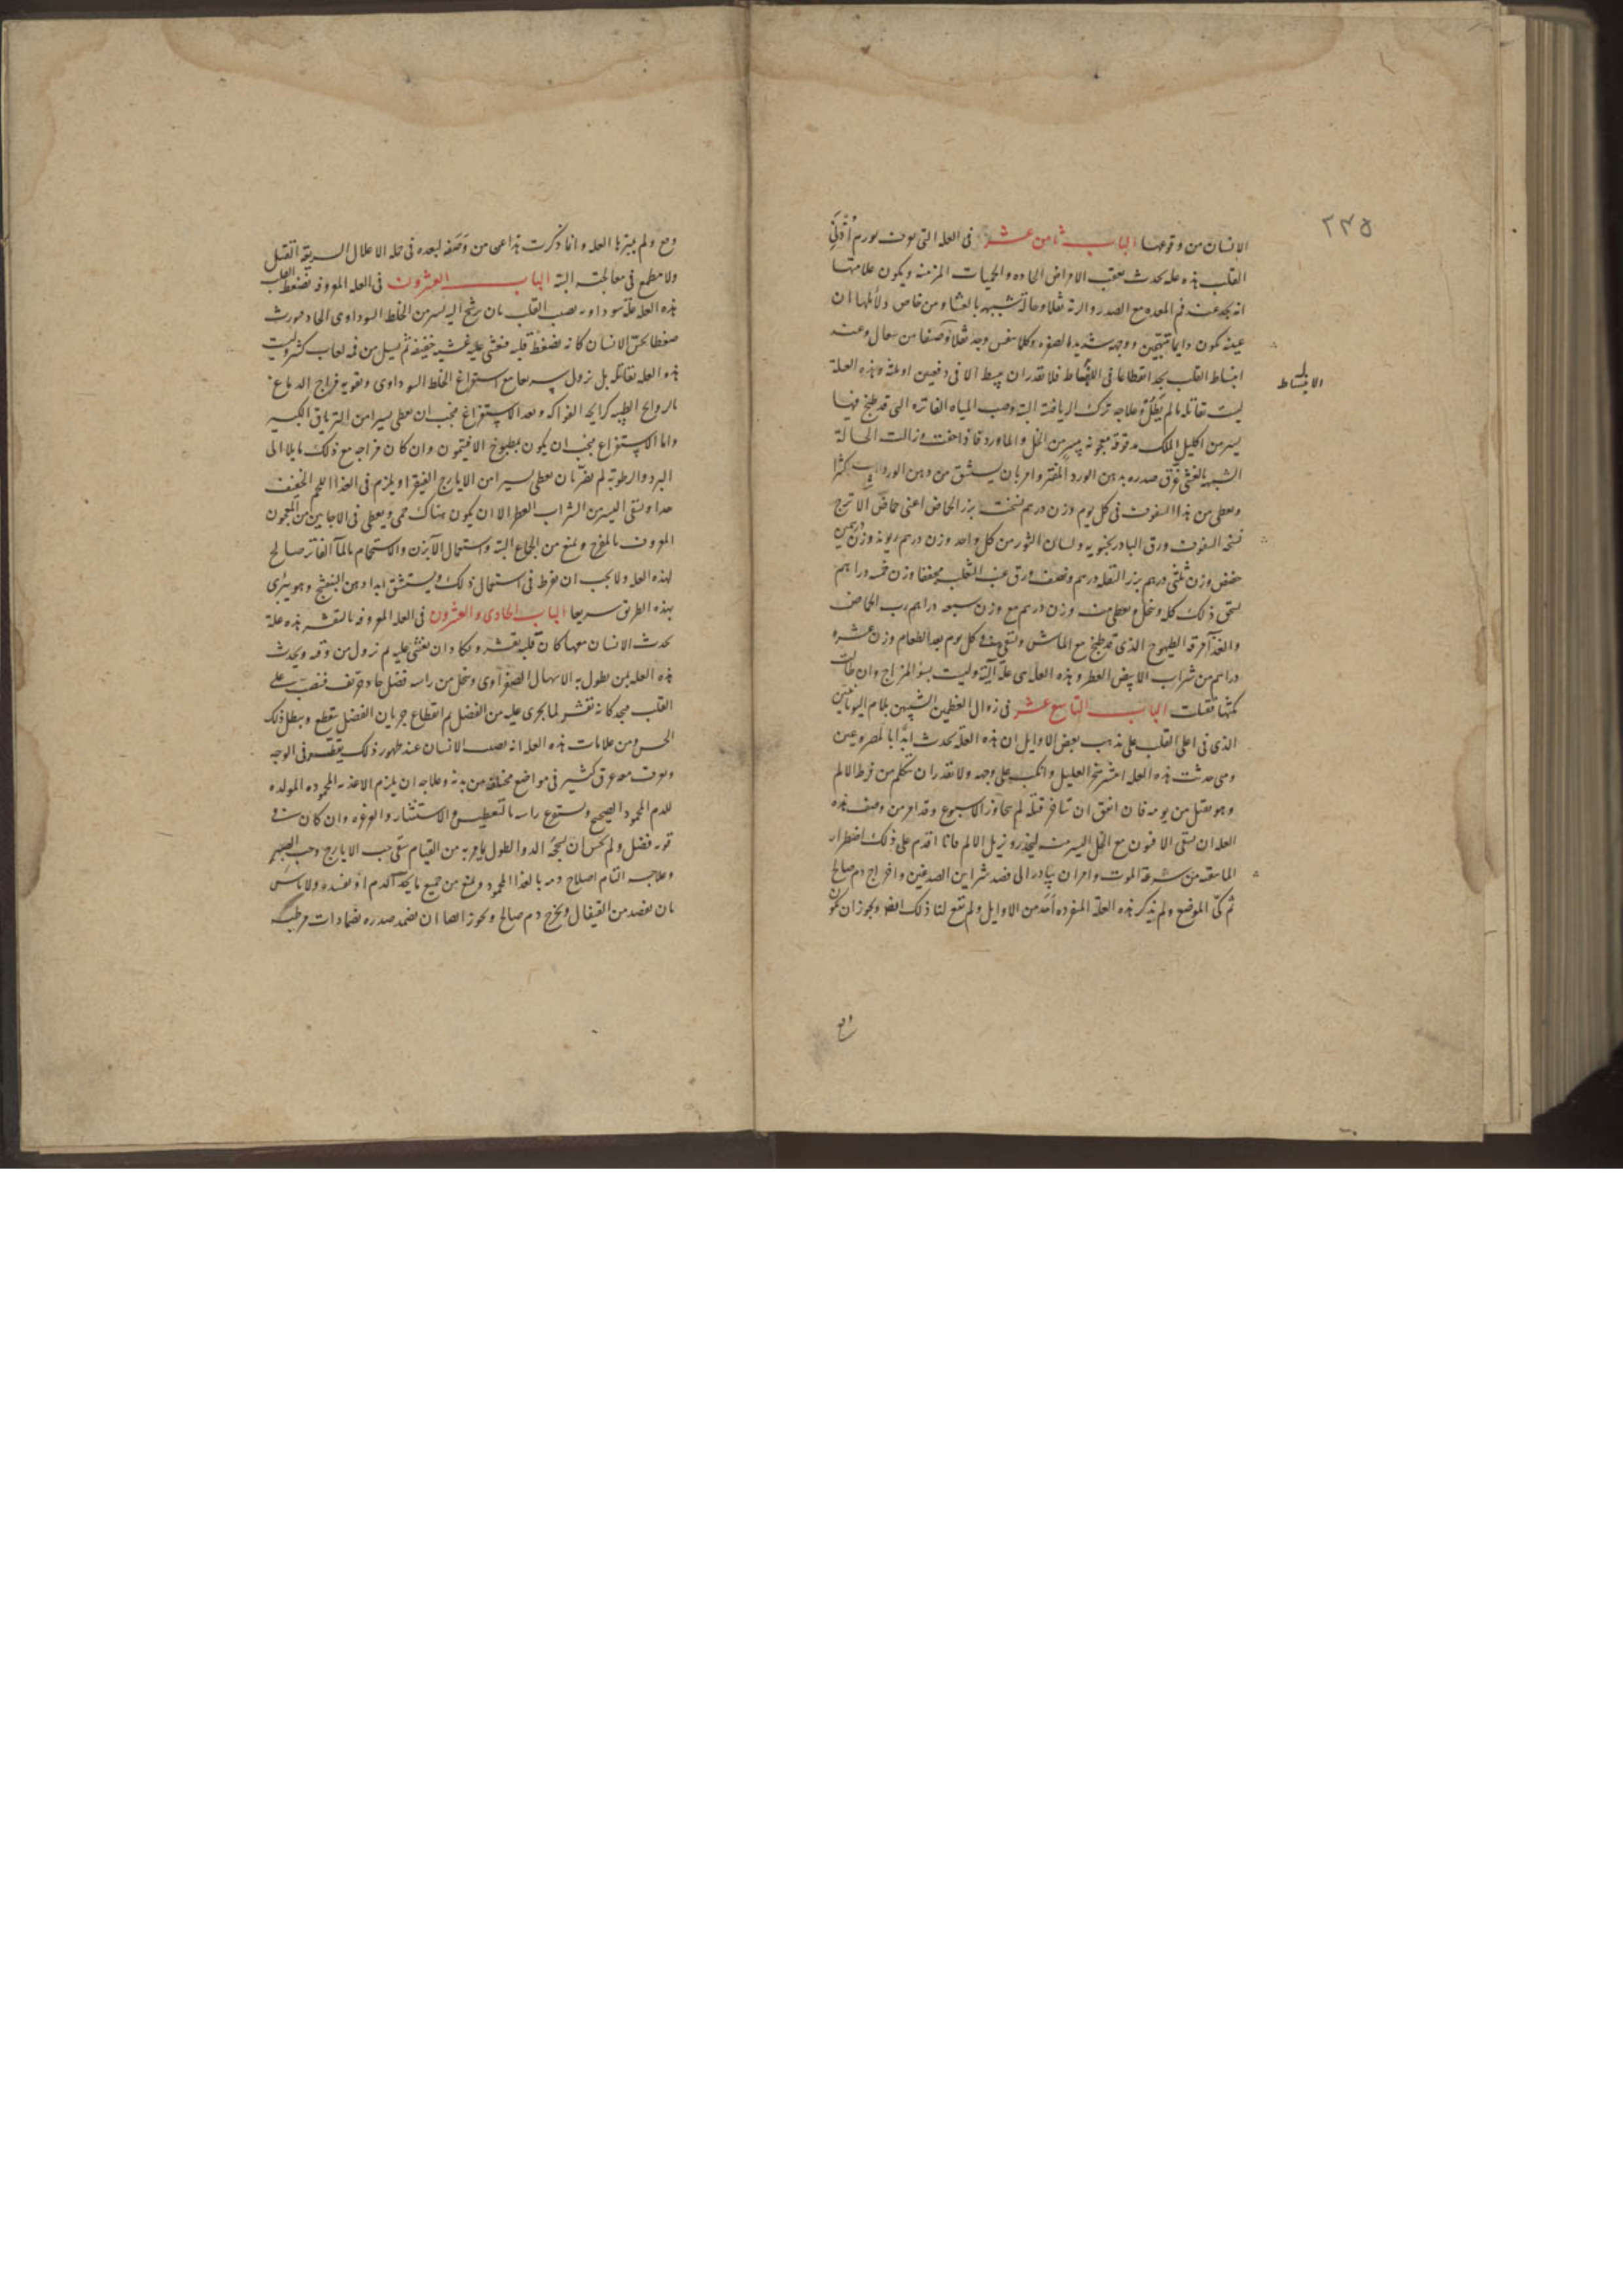 ٢٣٥
الانسان من وقوعها الباب ثامن عشر فى العله التى تعرف بورم أذنى
القلب هذه عله تحدث بعقب الامراض الحاده والحميات المزمنه ويكون علامتها
انه يجد عند فم المعده مع الصدر والرئه ثقلا وحالة شبيهه بالغشاء ومن خاص دلائلها ان
عينه تكون دايما متهيجتين ووجهه شديد الصفره وكلما تنفس وجد ثقلا وضعفا من سعال وعند
انبساط القلب يجد انقطاعا فى الانبساط فلا يقدر ان يبسط الا فى دفعتين او ثلثة وهذه العلة
الانبساط
ليست بقاتله ما لم يطل وعلاجه ترك الرياضة البته وصب المياه الفاتره التى قد طبخ فيها
يسير من اكليل الملك مدقوقة معجونه بيسير من الخل والماورد فاذا خفت وزالت الحالة
الشبيهه بالغشى مرّق صدره بدهن الورد المفتر وامر بان يستنشق من دهن الورد كثيرا
ويعطى من هذا السفوف فى كل يوم وزن درهم نسخت بزر الحماض اعنى حماض الاترج
نسخه السفوف ورق البادرنجبويه ولسان الثور من كل واحد وزن درهم ريوند وزن درهمين
حضض وزن ثلثى درهم بزر البقله درهم ونصف ورق عنب الثعلب مجففا وزن خمسه دراهم
يسحق ذلك كله وينخل ويعطى منه وزن درهم مع وزن سبعه دراهم رب الحماض
والغذآ مرقه الطيهوج الذى قد طبخ مع الماش ويسقى فى كل يوم بعد الطعام وزن عشره
دراهم من شراب الابيض العطر وهذه العله هى علة آلية وليست بسؤ المزاج وان طالت
مكثها قتلت الباب التاسع عشر فى زوال العظمين الشبيهين بلام اليونانيين
الذى فى اعلى القلب على مذهب بعض الاوايل ان هذه العلة تحدث ابدا بالمصروعين
ومتى حدثت هذه العله انتشر منخر العليل وانكب على وجهه ولا يقدر ان يتكلم من فرط الالم
وهو يقتل من يومه فان اتفق ان تأخر قتله لم يجاوز الاسبوع وقد امر من وصف هذه
العله ان يسقى الافيون مع الخل اليسير منه ليخدر ويزيل الالم وانما اقدم على ذلك اضطرار
لما تيقنه من سرعة الموت وامر ان يبادر الى فصد شراين الصدغين واخراج دم صالح
ثم كىّ الموضع ولم يذكر هذه العلة المنفرده أحد من الاوايل ولم تقع لنا ذلك ايضا ويجوز ان تكون
وقع
وقع ولم يميزها العله وانما ذكرت هذا عمن وصفه لبعده فى جمله الاعلال السريعة القتل
ولا مطمع فى معالجته البته الباب العشرون فى العله المعروفه بضغط القلب
هذه العله علة سوداويه تصيب القلب بان يرشح اليه يسير من الخلط السوداوى الحاد فيورث
ضغطا يحس الانسان كانه يضغط قلبه فيغشى عليه غشيه خفيفه ثم يسيل من فمه لعاب كثير وليست
هذه العله بقاتله بل تزول سريعا مع استفراغ الخلط السوداوى وتقويه مزاج الدماغ
بالروايح الطيبه كرايحه الفواكه وبعد الاستفراغ يجب ان يعطى يسيرا من الترياق الكبير
واما الاستفراغ فيجب ان يكون بمطبوخ الافتيمون وان كان مزاجه مع ذلك مايلا الى
البرد والرطوبة لم يضر بان يعطى يسيرا من الايارج الفيقرا ويلزم فى الغذا اللحم الخفيف
جدا ويسقى اليسير من الشراب العطر الا ان يكون هناك حمى ويعطى فى الاحايين من المعجون
المعروف بالمفرح ويمنع من الجماع البته واستعمال الآبزن والاستحمام بالمآ الفاتر صالح
لهذه العله ولا يجب ان يفرط فى استعمال ذلك ويستنشق ابدا دهن البنفسج وهو يبرى
بهذه الطريق سريعا الباب الحادى والعشرون فى العله المعروفه بالتقشر هذه علة
تحدث الانسان معها كان قلبه يقشر ويكاد ان يغشى عليه ثم تزول من وقته ويحدث
هذه العله بمن يطول به الاسهال الصفرآوى وينحل من راسه فضل حاد حريف فينصب على
القلب فيجد كانه تقشر لما يجرى عليه من الفضل ثم انقطاع جريان الفضل ينقطع ويبطل ذلك
الحس ومن علامات هذه العله انه يصيب الانسان عند ظهور ذلك تقطير فى الوجه
ويعرف معه عرق كثير فى مواضع مختلفة من بدنه وعلاجه ان يلزم الاغذيه المحموده المولده
للدم المحمود الصحيح ويستفرغ راسه بالتعطيس والاستنثار والغرغره وان كان فى
قوته فضل ولم يخس ان يلجه الدوا لطول ما به من القيام سقى حب الايارج وحب الصبر
وعلاجه التام اصلاح دمه بالغذا المحمود ومنع من جميع ما يحد الدم او يفسده ولا باس
بان يفصد من القيفال ويخرج دم صالح ويجوز ايضا ان يضمد صدره بضمادات مرطبه